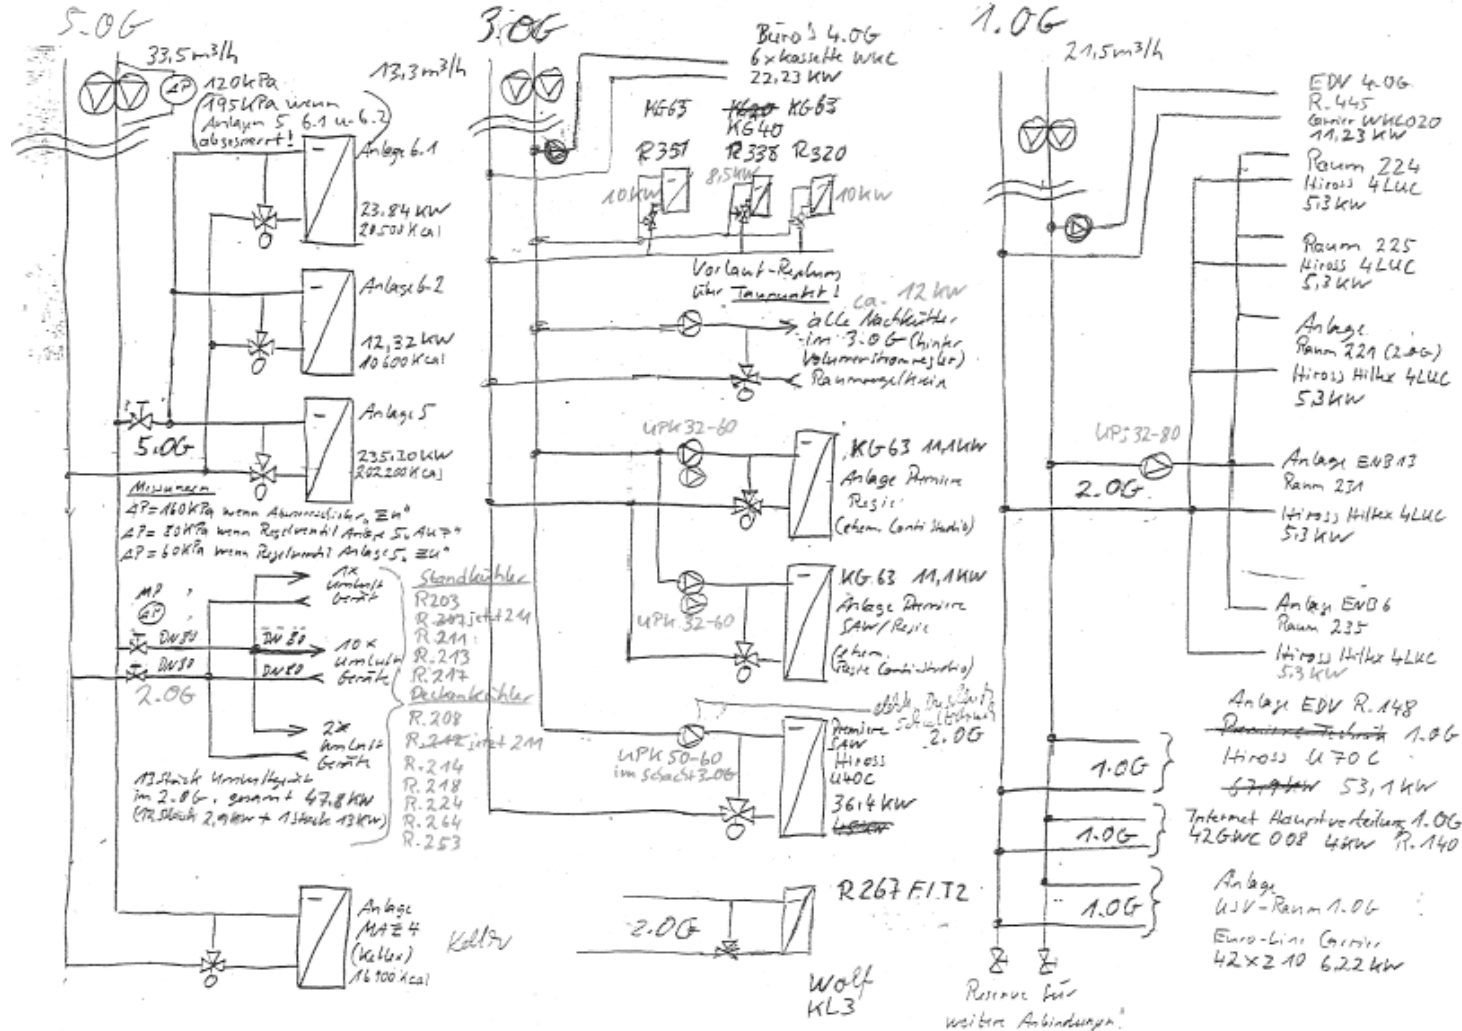 5.OG
33,5 m³/h
ΔP
120 kPa
195 kPa wenn
Anlagen 5 6.1 u. 6.2
abgesperrt!
Anlage 6.1
23.84 KW
20500 Kcal
Anlage 6.2
12,32 KW
10600 Kcal
Anlage 5
5.OG
235,20 KW
202200 Kcal
Messungen
ΔP = 160 KPa wenn "Zu"
ΔP = 80 KPa wenn Regelventil Anlage 5 "Auf"
ΔP = 60 KPa wenn Regelventil Anlage 5 "Zu"
MP
ΔP
1x
Umluft
Gerät
DN80
DN80
10x
Umluft
Geräte
DN80
DN80
2.OG
2x
Umluft
Geräte
13 Stück Umluftgeräte
im 2.OG, gesamt 47,8 KW
(12 Stück 2,9 KW + 1 Stück 13 KW)
Standkühler
R203
R.207 jetzt 211
R.211
R.213
R.217
Deckenkühler
R.208
R.212 jetzt 211
R.214
R.218
R.224
R.264
R.253
Anlage
MAZ 4
(Keller)
16900 Kcal
Keller
3.OG
13,3 m³/h
Büro's 4.OG
6 x Kassette WKC
22,23 KW
KG63
KG20 KG63
KG40
R351
R338
R320
10 KW
8,5 KW
10 KW
Vorlauf-Regelung
über Taupunkt!
ca. 12 KW
alle Nachkühler
im 3.OG (hinter
Volumenstromregler)
UPK 32-60
KG63 11,1 KW
Anlage Premiere
Regie
(ehem. Combi Studio)
UPK 32-60
KG.63 11,1 KW
Anlage Premiere
SAW/Regie
(ehem.
Regie Combi-Studio)
2.OG
UPK 50-60
im Schacht 3.OG
Premiere
SAW
Hiross
U40C
36,4 KW
2.OG
R267 F.I.T2
Wolf
KL3
1.OG
21,5 m³/h
EDV 4.OG
R.445
Carrier WKL020
11,23 KW
Raum 224
Hiross 4LUC
5,3 KW
Raum 225
Hiross 4LUC
5,3 KW
Anlage
Raum 221 (2.OG)
Hiross Hiltex 4LUC
5,3 KW
UPS 32-80
2.OG
Anlage ENB13
Raum 231
Hiross Hiltex 4LUC
5,3 KW
Anlage ENB6
Raum 235
Hiross Hiltex 4LUC
5,3 KW
Anlage EDV R.148
Premiere-Technik 1.OG
1.OG
Hiross U70C
67,9 KW 53,1 KW
1.OG
Internet Hauptverteilung 1.OG
42GWC 008 4KW R.140
1.OG
Anlage
USV-Raum 1.OG
Euro-Line Carrier
42 x Z 10 6,22 KW
Reserve für
weitere Anbindungen!